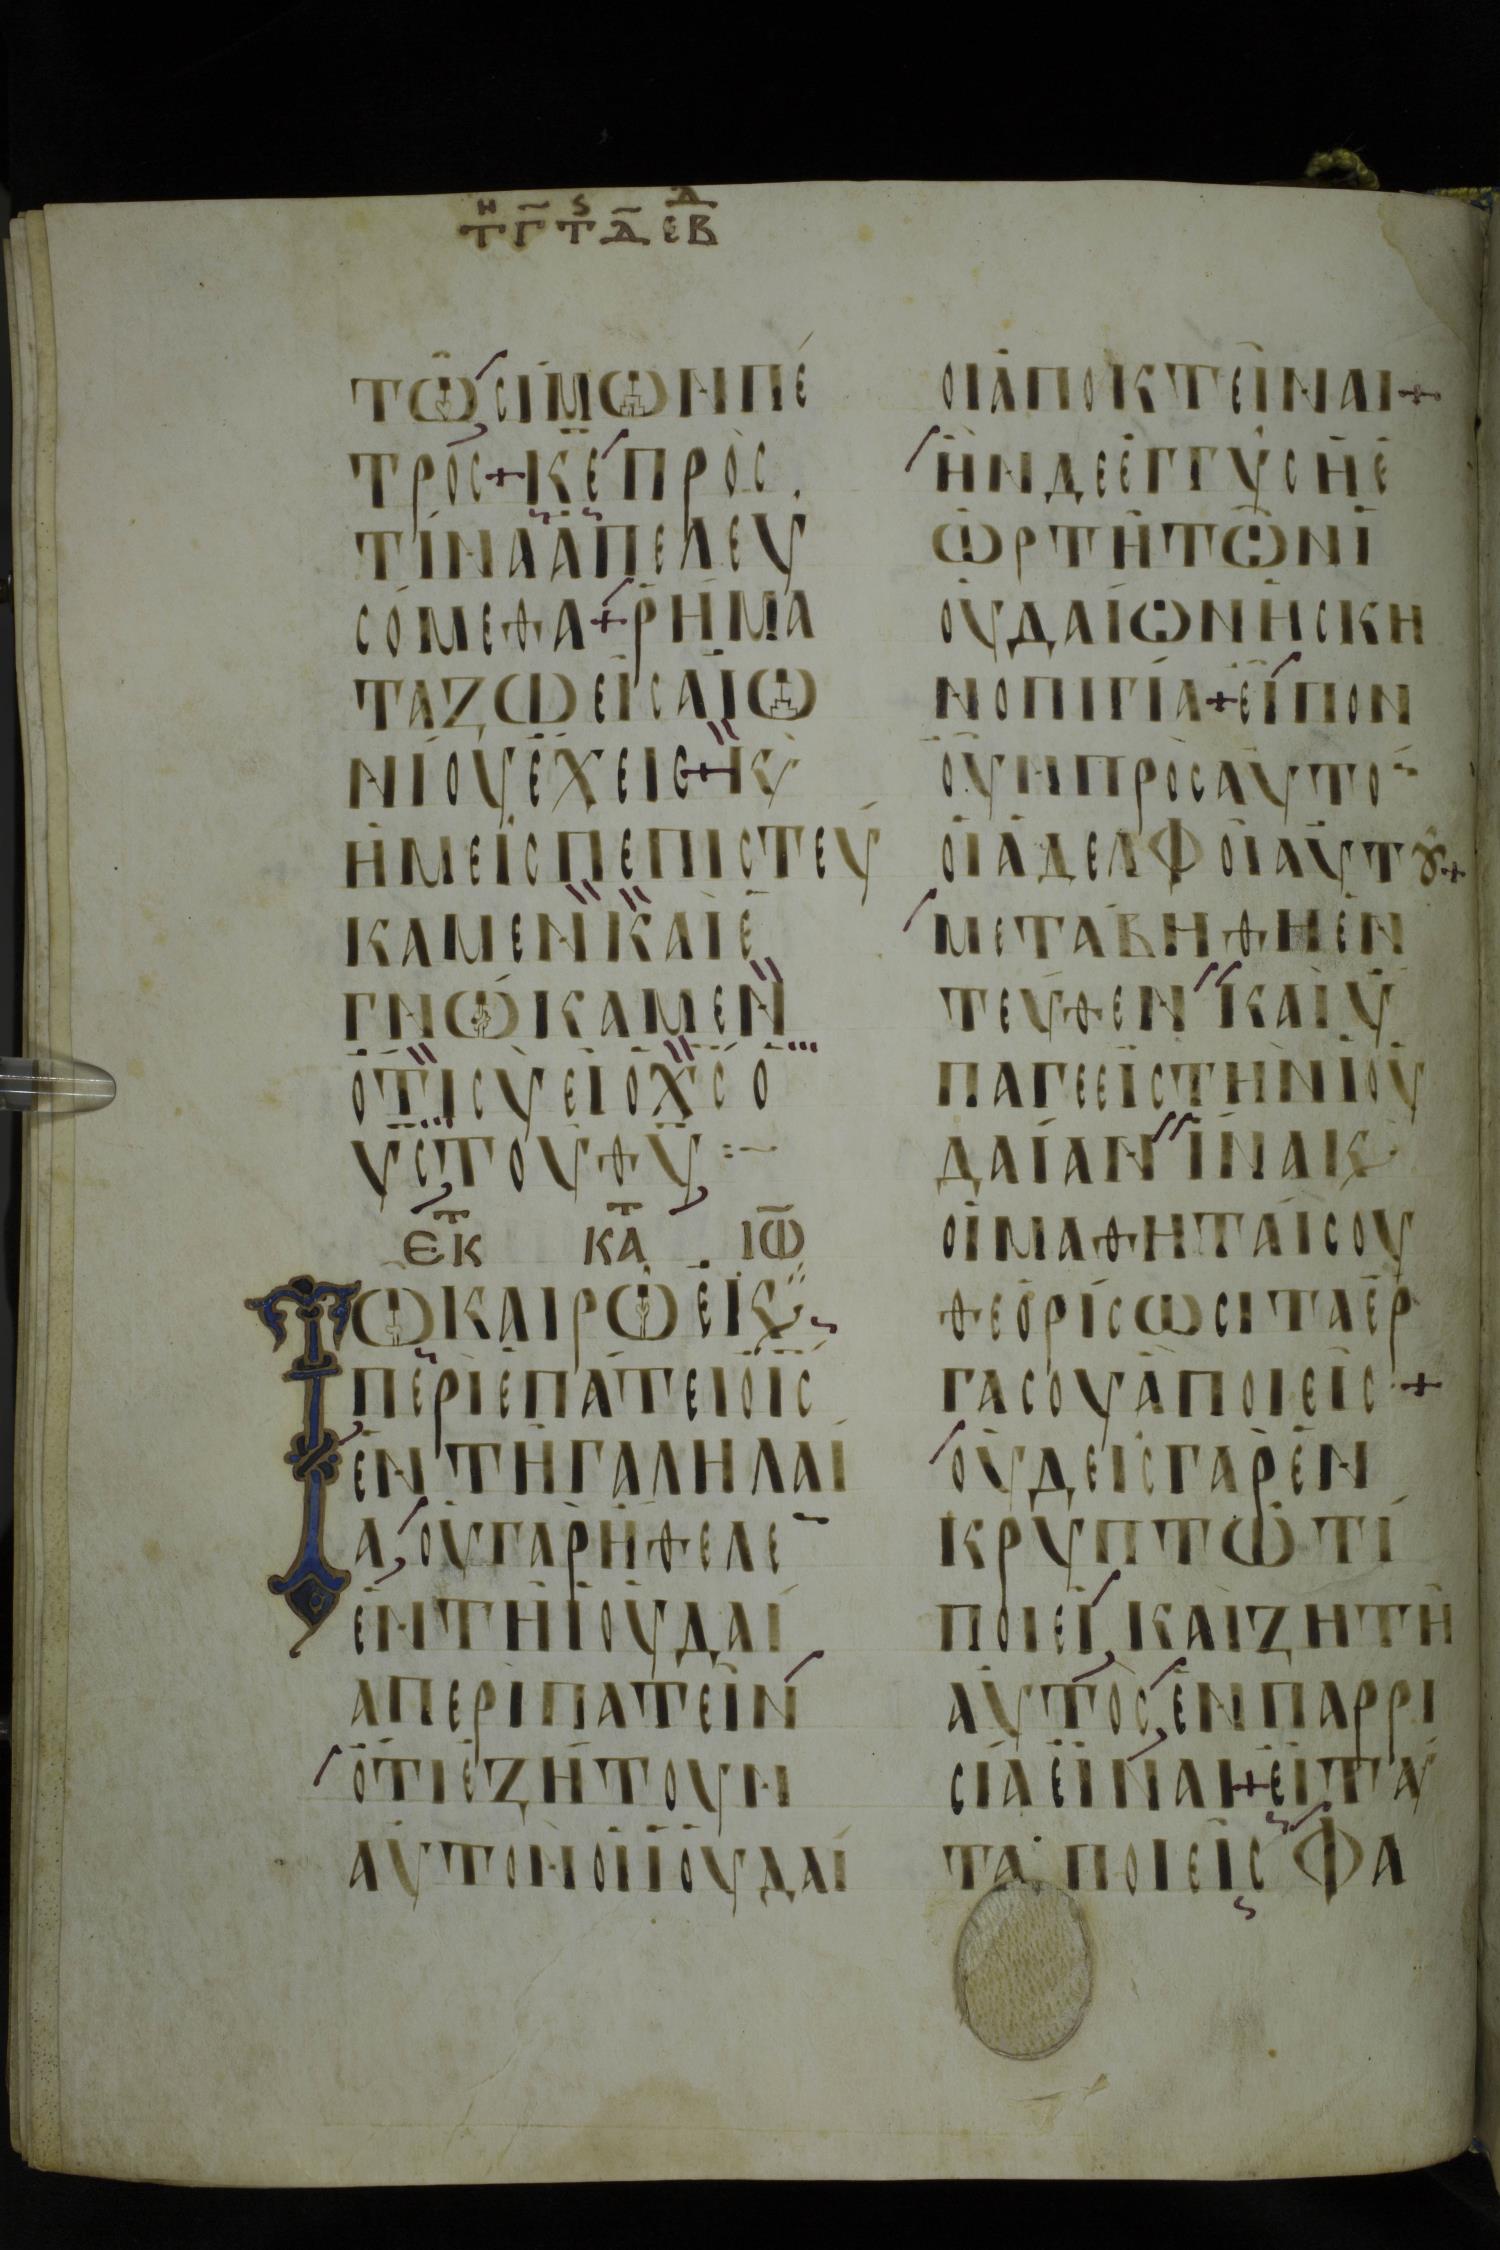 Τῌ Γ̃ Τς Δ̃ ΕΒΔ
ΤΩ ΣΙΜΩΝ ΠΕ
ΤΡΟΣ + ΚΕ ΠΡΟΣ
ΤΙΝΑ ΑΠΕΛΕΥ
ΣΟΜΕΘΑ + ΡΗΜΑ
ΤΑ ΖΩΕΙΣ ΑΙΩ
ΝΙΟΥ ΕΧΕΙΣ + Κ̀
ΗΜΕΙΣ ΠΕΠΙΣΤΕΥ
ΚΑΜΕΝ ΚΑΙ Ε
ΓΝΩΚΑΜΕΝ
ΟΤΙ ΣΥ ΕΙ Ο ΧΣ Ο
ΥΣ ΤΟΥ ΘΥ :~
ΕΚ Τ ΚΑΤ ΙΩ
ΤΩ ΚΑΙΡΩ ΕΚ
ΠΕΡΙΕΠΑΤΕΙ Ο ΙΣ
ΕΝ ΤΗ ΓΑΛΗΛΑΙ
Α ΟΥ ΓΑΡ ΗΘΕΛΕ
ΕΝ ΤΗ ΙΟΥΔΑΙ
Α ΠΕΡΙΠΑΤΕΙΝ
ΟΤΙ ΕΖΗΤΟΥΝ
ΑΥΤΟΝ ΟΙ ΙΟΥΔΑΙ
ΟΙ ΑΠΟΚΤΕΙΝΑΙ +
ΗΝ ΔΕ ΕΓΓΥΣ Η Ε
ΩΡΤΗ ΤΩΝ Ι
ΟΥΔΑΙΩΝ Η ΣΚΗ
ΝΟΠΙΓΙΑ + ΕΙΠΟΝ
ΟΥΝ ΠΡΟΣ ΑΥΤΟ̄
ΟΙ ΑΔΕΛΦΟΙ ΑΥΤȢ +
ΜΕΤΑΒΗΘΗ ΕΝ
ΤΕΥΘΕΝ ΚΑΙ Υ
ΠΑΓΕ ΕΙΣ ΤΗΝ ΙΟΥ
ΔΑΙΑΝ ΙΝΑ Κ
ΟΙ ΜΑΘΗΤΑΙ ΣΟΥ
ΘΕΟΡΙΣΩΣΙ ΤΑ ΕΡ
ΓΑ ΣΟΥ Α ΠΟΙΕΙΣ +
ΟΥΔΕΙΣ ΓΑΡ ΕΝ
ΚΡΥΠΤΩ ΤΙ
ΠΟΙΕΙ ΚΑΙ ΖΗΤΗ
ΑΥΤΟΣ ΕΝ ΠΑΡΡΙ
ΣΙΑ ΕΙΝΑΙ + ΕΙ ΤΑΥ
ΤΑ ΠΟΙΕΙΣ ΦΑ